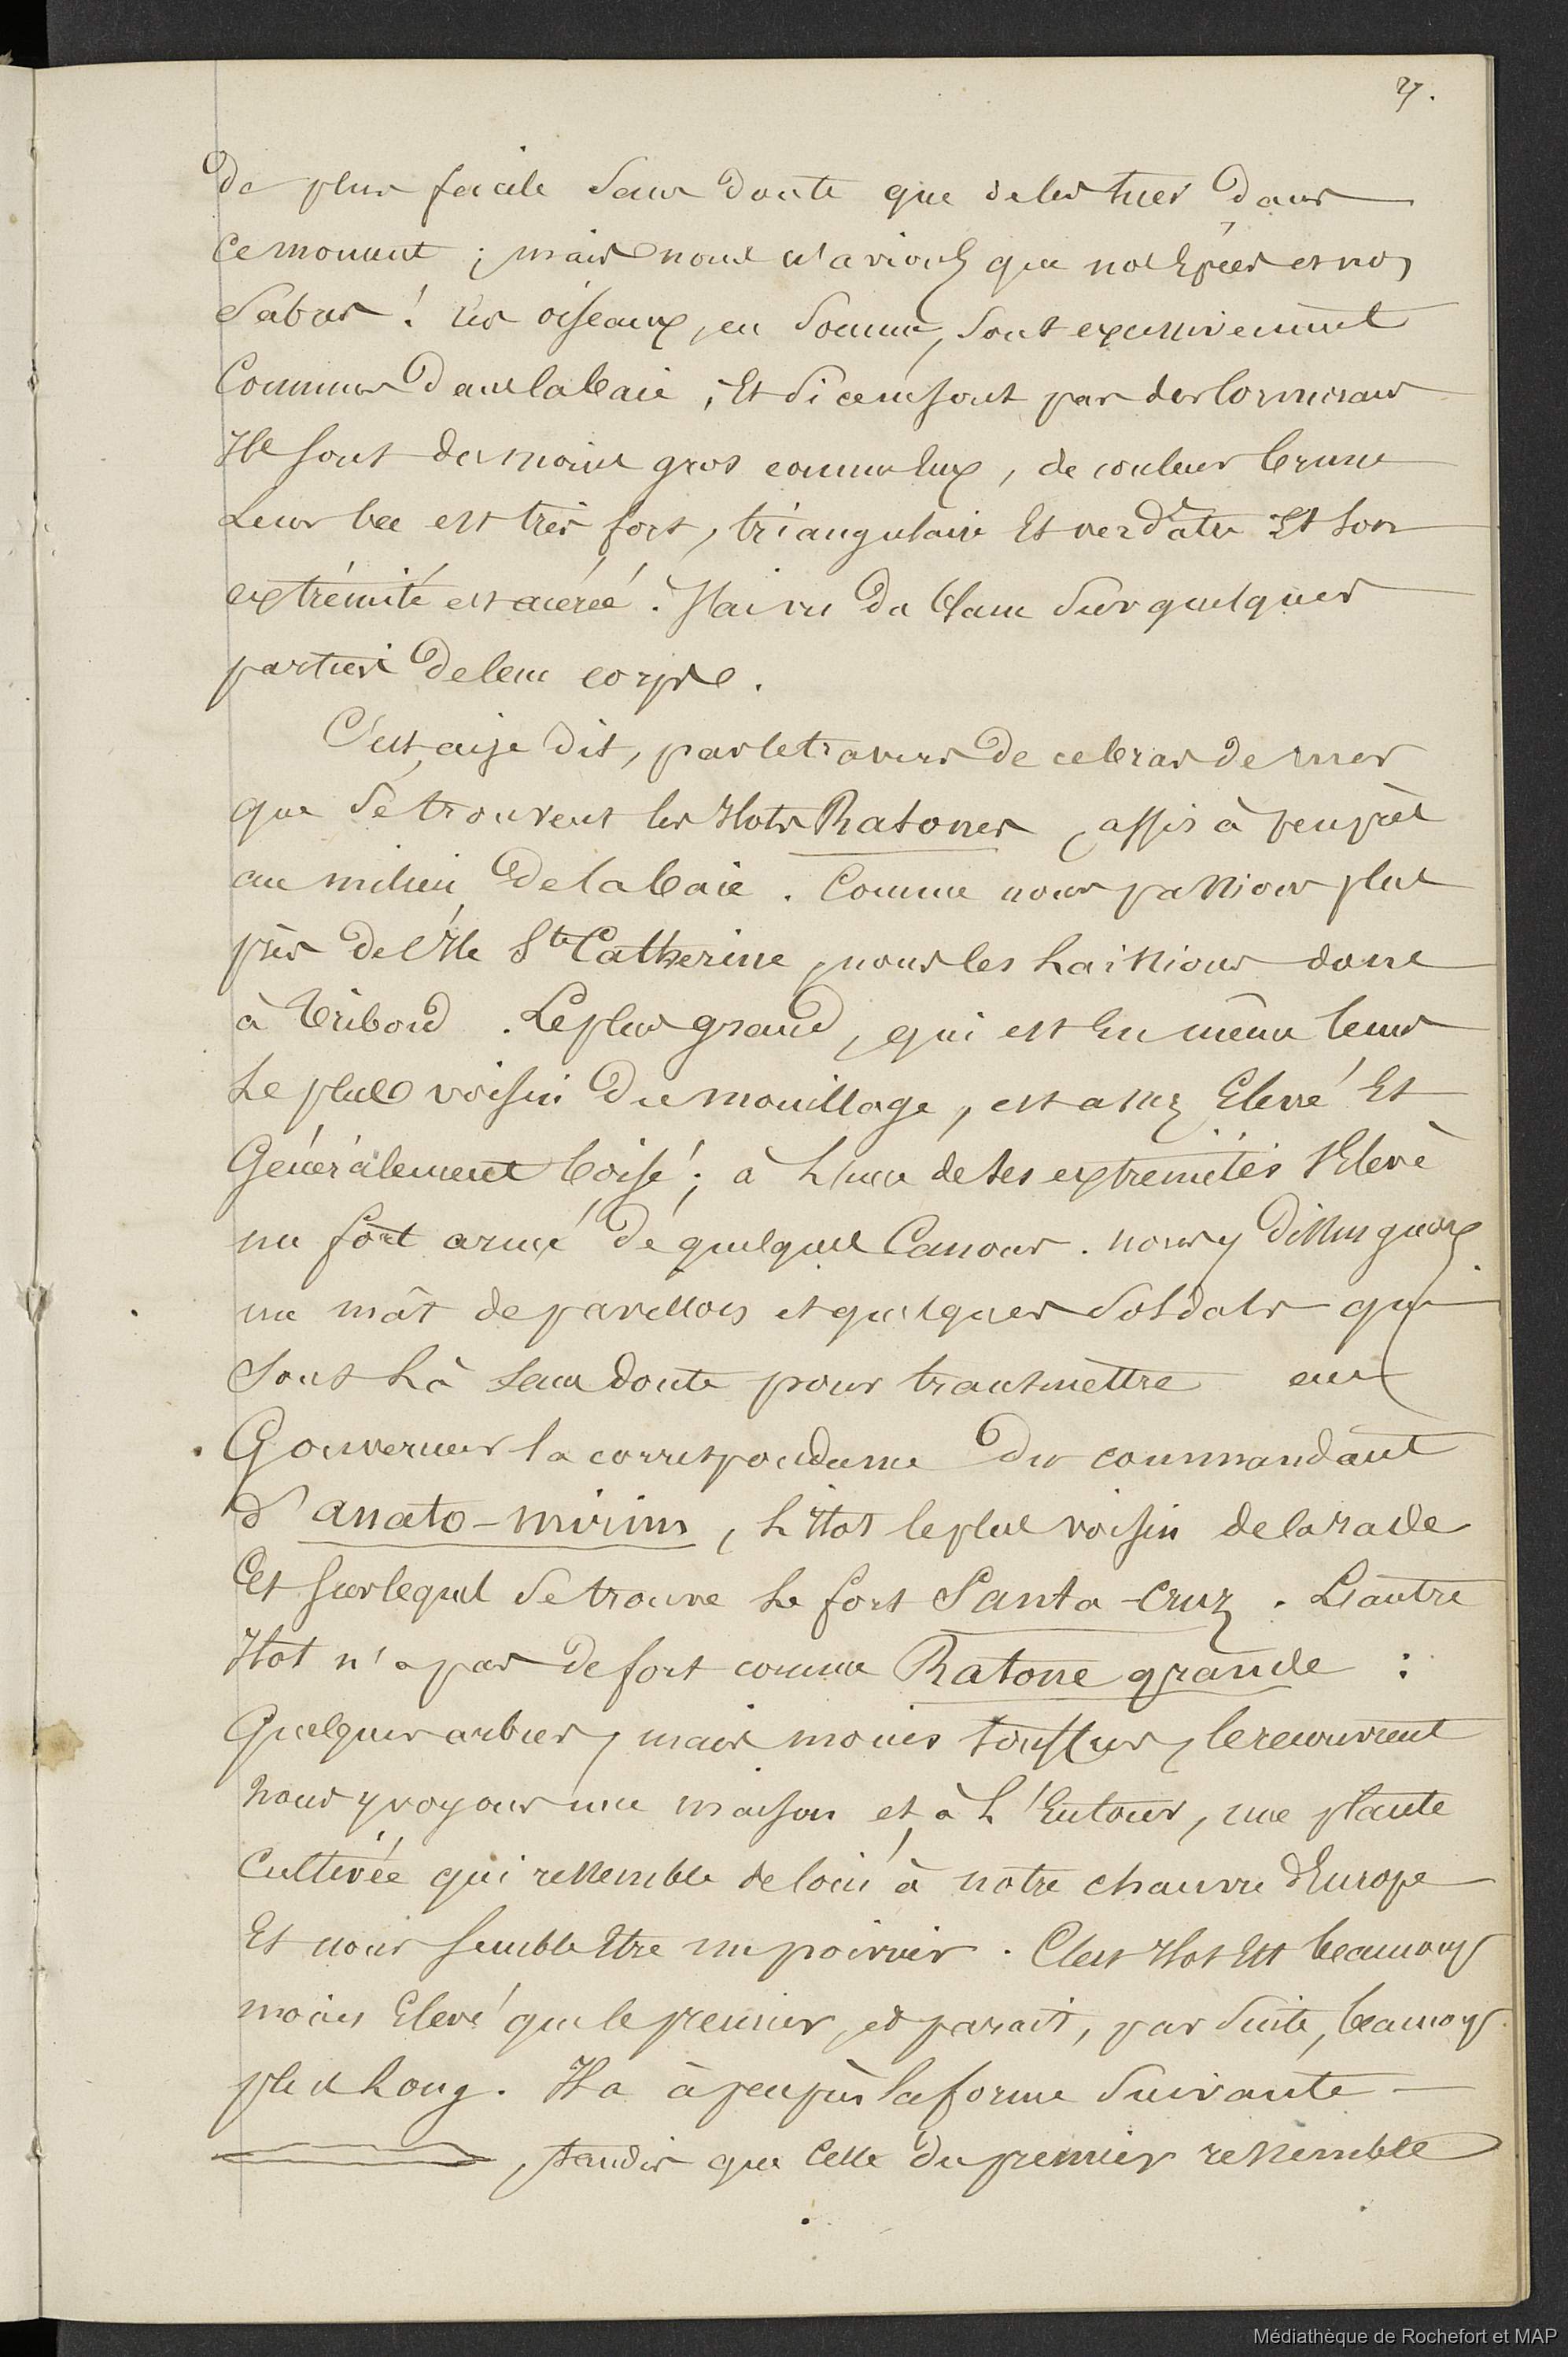 7.
de plus facile sans doute que de les tuer dans
ce moment ; mais nous n'avions que nos Epées et nos
Sabres ! Ces oiseaux, en somme, sont excessivement
Communs dans la baie ; Et si ce ne sont pas des Cormorans
Ils sont du moins gros comme eux, de couleur brune
Leur bec est très fort, triangulaire Et verdâtre Et son
extrémité est acérée. J'ai vu du blanc sur quelques
parties de leur corps.
C'est, ai-je dit, par le travers de ce bras de mer
que se trouvent les Ilots Ratones, assis à peu près
au milieu de la baie. Comme nous passions plus
près de l'Ile Ste Catherine, nous les laissions donc
à tribord. Le plus grand, qui est En même tems
Le plus voisin du mouillage, est assez Elevé Et
Généralement boisé ; à L'une de ses extrémités s'Elève
un fort armé de quelques Canons. nous y distinguons
un mât de pavillon et quelques soldats qui
sont Là sans doute pour transmettre au
Gouverneur la correspondance du commandant
d'anato-mirim, L'ilot le plus voisin de la rade
Et sur lequel se trouve Le fort Santa-Cruz. L'autre
Ilot n'a pas de fort comme Ratone grande :
Quelques arbres, mais moins touffus, le recouvrent
nous y voyons une maison et, à L'Entour, une plante
Cultivée qui ressemble de loin à notre chanvre d'Europe
Et nous semble Etre un poivrier. Cet Ilot Est beaucoup
moins Elevé que le premier, et parait, par suite, beaucoup
plus Long. Il a à peu près la forme suivante
, tandis que Celle du premier ressemble
Médiathèque de Rochefort et MAP